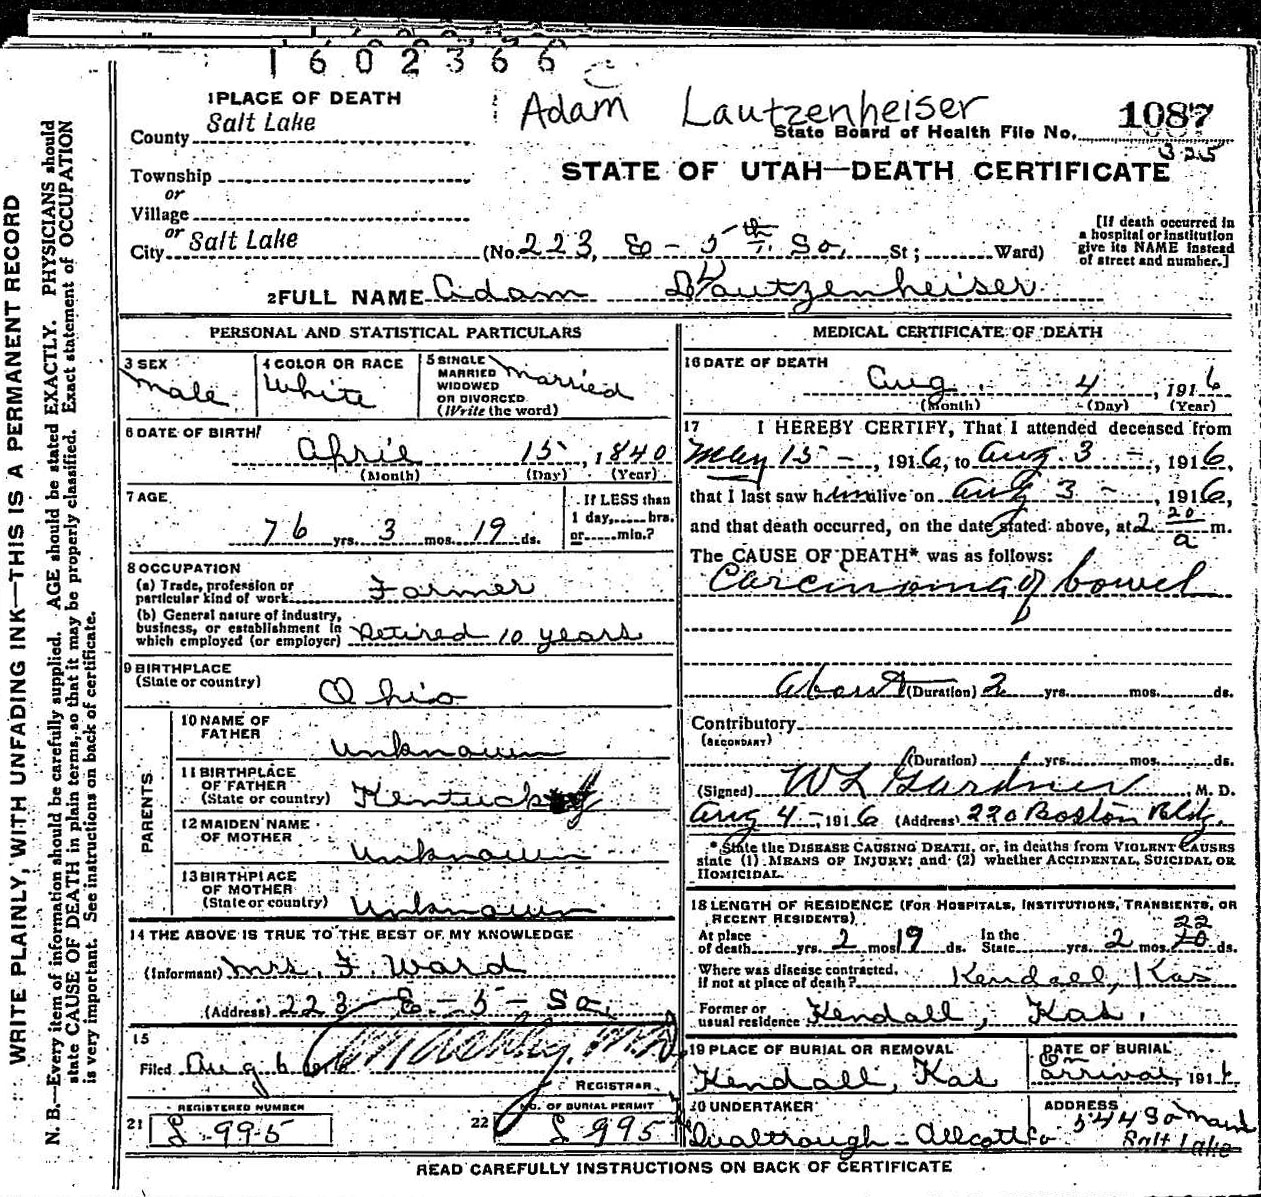 1602366
1 PLACE OF DEATH
Adam C Lautzenheiser
1087
County Salt Lake
State Board of Health File No.
325
Township
STATE OF UTAH—DEATH CERTIFICATE
or
Village
or
City Salt Lake (No. 223, E - 5th So. St; Ward)
[If death occurred in
a hospital or institution
give its NAME instead
of street and number.]
2 FULL NAME Adam Lautzenheiser
WRITE PLAINLY, WITH UNFADING INK—THIS IS A PERMANENT RECORD
N. B.—Every item of information should be carefully supplied. AGE should be stated EXACTLY. PHYSICIANS should
state CAUSE OF DEATH in plain terms, so that it may be properly classified. Exact statement of OCCUPATION
is very important. See instructions on back of certificate.
PERSONAL AND STATISTICAL PARTICULARS
3 SEX
Male
4 COLOR OR RACE
White
5 SINGLE
MARRIED
WIDOWED
OR DIVORCED
(Write the word)
Married
6 DATE OF BIRTH
April 15 , 1840
(Month) (Day) (Year)
7 AGE
76 yrs. 3 mos. 19 ds.
If LESS than
1 day, hrs.
or min.?
8 OCCUPATION
(a) Trade, profession or
particular kind of work Farmer
(b) General nature of industry,
business, or establishment in
which employed (or employer) Retired 10 years
9 BIRTHPLACE
(State or country)
Ohio
PARENTS
10 NAME OF
FATHER
Unknown
11 BIRTHPLACE
OF FATHER
(State or country) Kentucky
12 MAIDEN NAME
OF MOTHER
Unknown
13 BIRTHPLACE
OF MOTHER
(State or country) Unknown
14 THE ABOVE IS TRUE TO THE BEST OF MY KNOWLEDGE
(Informant) Mrs. F. Ward
(Address) 223 E - 5 - So,
15
Filed Aug 6 1916
REGISTRAR
21 REGISTERED NUMBER
L 995
22 NO. OF BURIAL PERMIT
L 995
MEDICAL CERTIFICATE OF DEATH
16 DATE OF DEATH
Aug. 4 , 1916
(Month) (Day) (Year)
17 I HEREBY CERTIFY, That I attended deceased from
May 15 - , 1916, to Aug. 3 - , 1916,
that I last saw him alive on Aug 3 - , 1916,
and that death occurred, on the date stated above, at 2 20 a m.
The CAUSE OF DEATH* was as follows:
Carcinoma of bowel
About (Duration) 2 yrs. mos. ds.
Contributory
(SECONDARY)
(Duration) yrs. mos. ds.
(Signed) W L Gardner M. D.
Aug 4 - , 1916 (Address) 220 Boston Bldg.
*State the DISEASE CAUSING DEATH, or, in deaths from VIOLENT CAUSES
state (1) MEANS OF INJURY; and (2) whether ACCIDENTAL, SUICIDAL OR
HOMICIDAL.
18 LENGTH OF RESIDENCE (FOR HOSPITALS, INSTITUTIONS, TRANSIENTS, OR
RECENT RESIDENTS)
At place
of death yrs. 2 mos 19 ds. In the
State yrs. 2 mos. 22 ds.
Where was disease contracted,
if not at place of death? Kendall, Kas
Former or
usual residence Kendall, Kas.
19 PLACE OF BURIAL OR REMOVAL
Kendall, Kas
DATE OF BURIAL
On
arrival, 1916
20 UNDERTAKER
Qualtrough - Allcott Co
ADDRESS
544 So Main
Salt Lake
READ CAREFULLY INSTRUCTIONS ON BACK OF CERTIFICATE